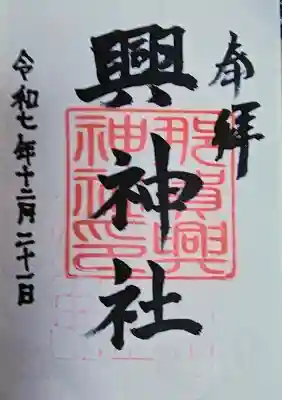 奉拝
那賀興
神社印
興神社
令和七年十二月二十一日